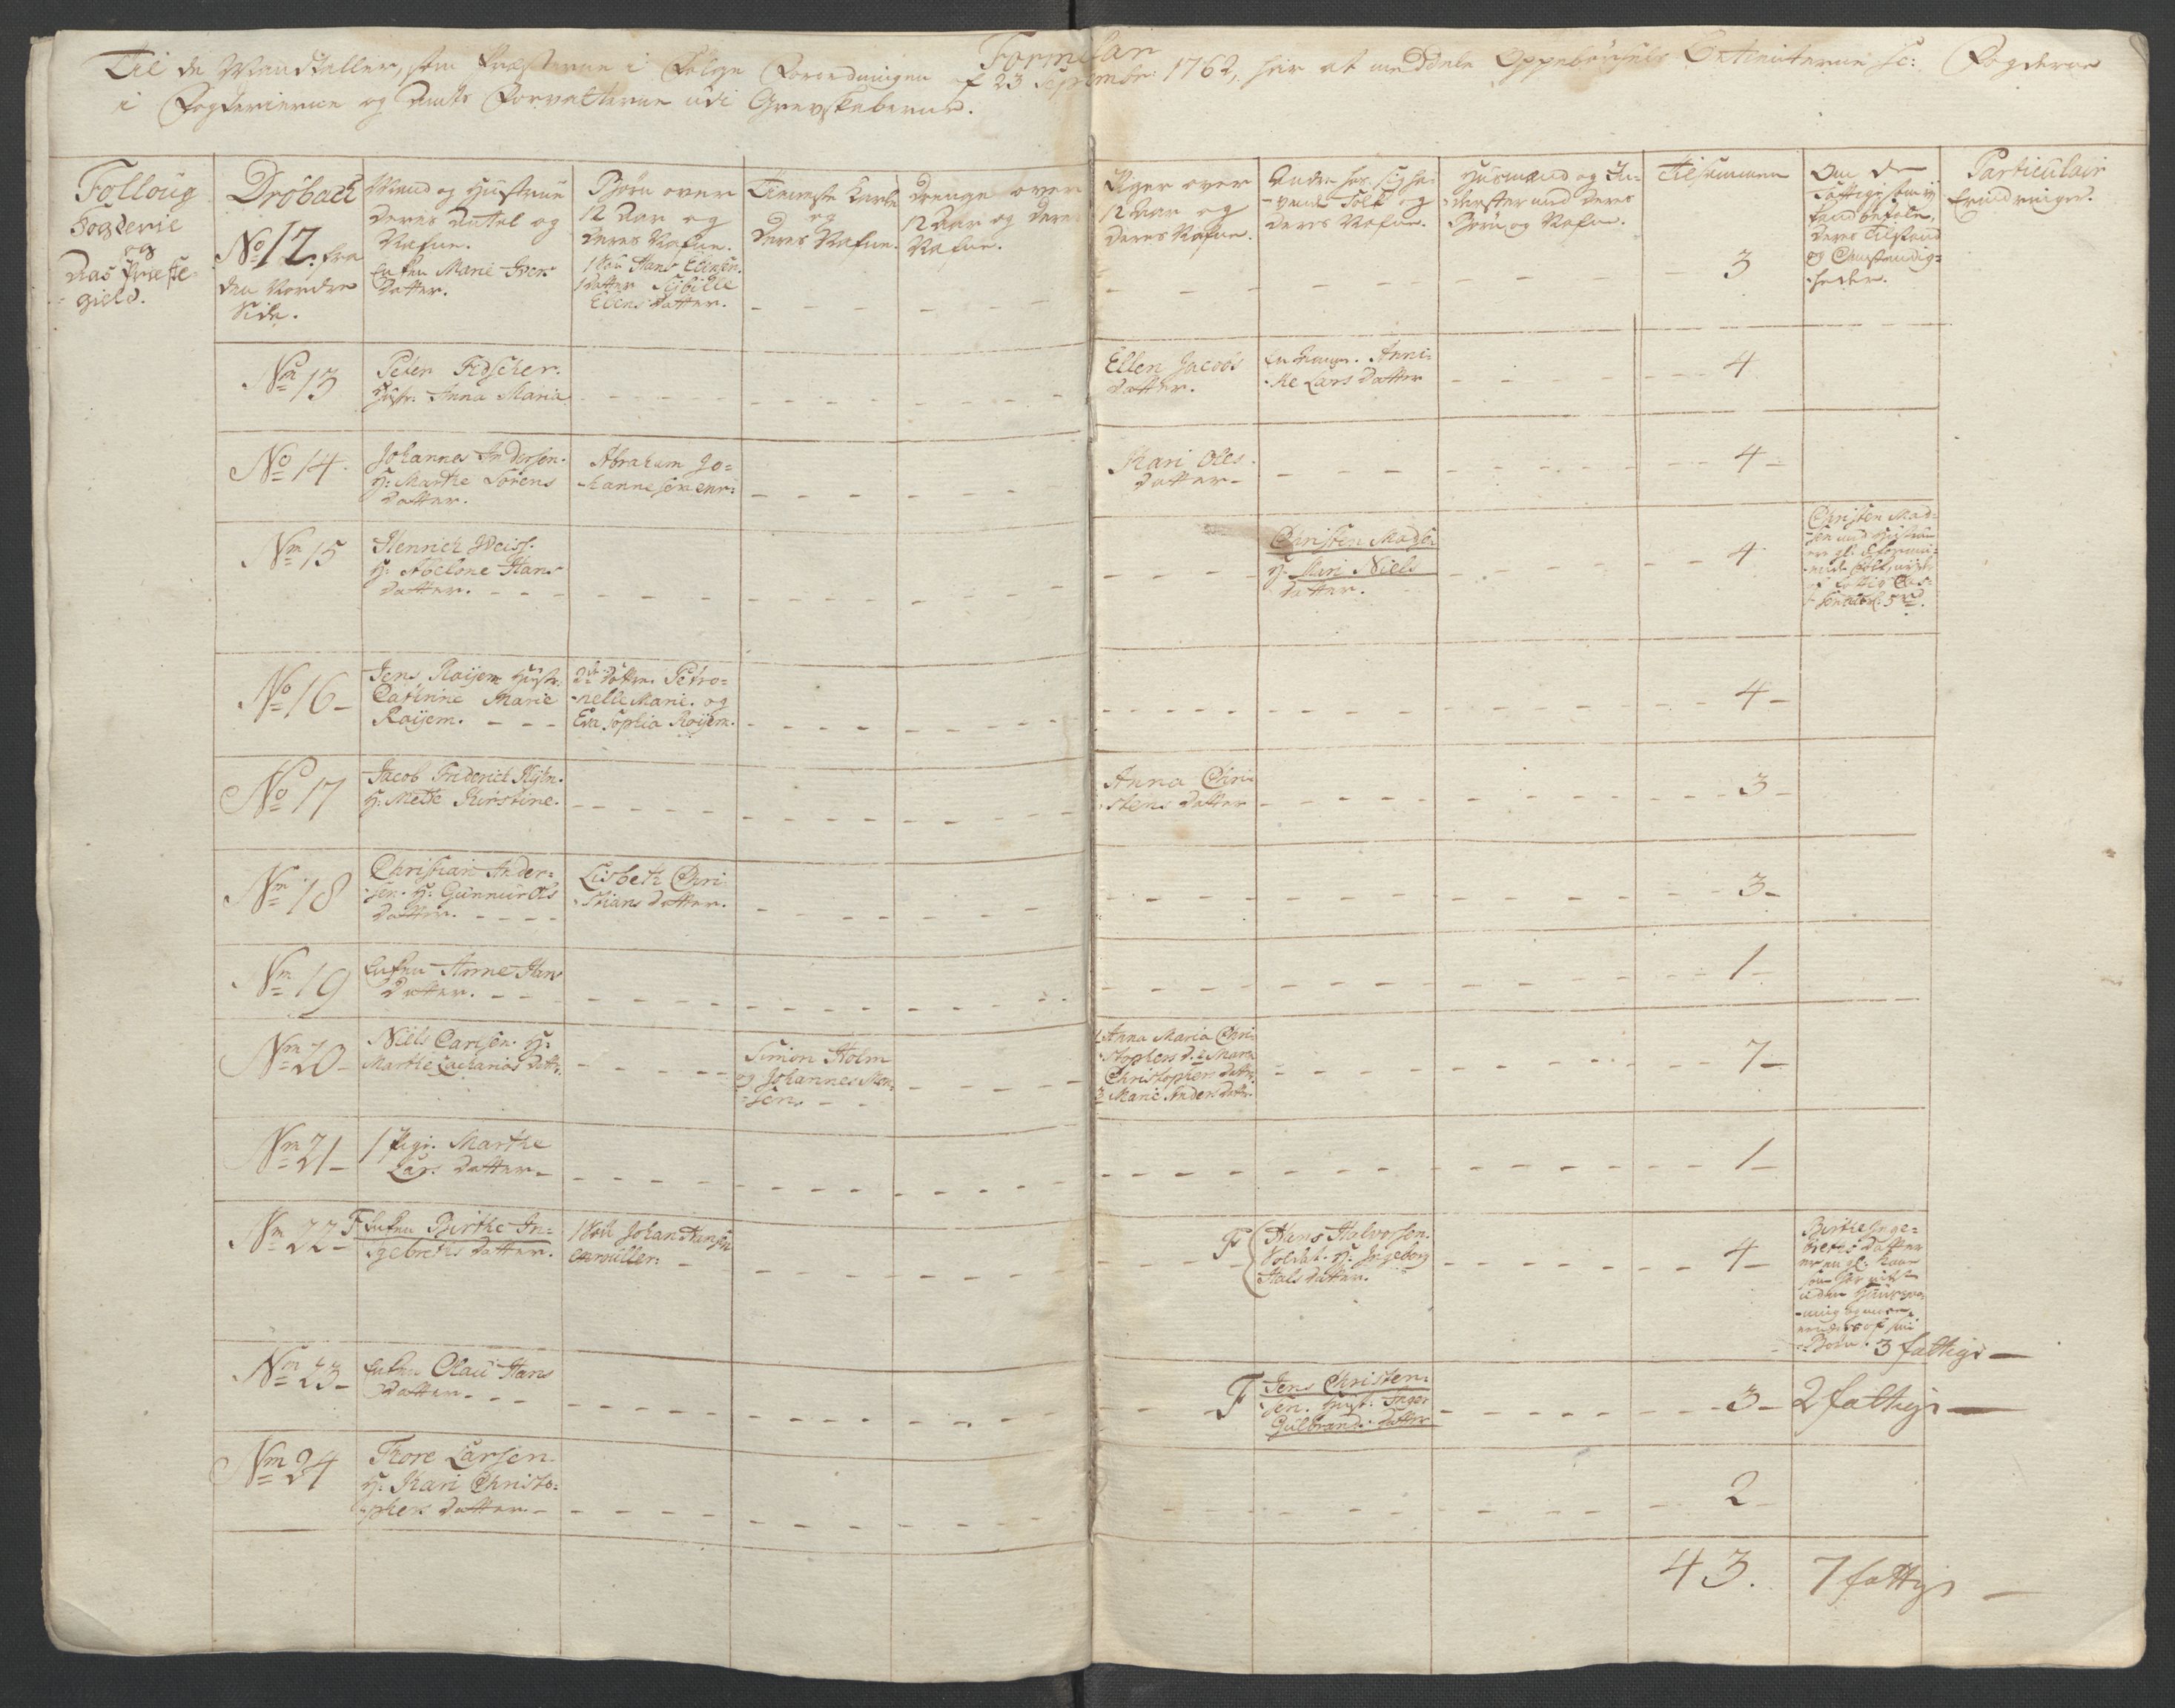 Formular
Til de Mandtaller, som Præsterne i Følge Forordningen af 23 Septembr: 1762, har at meddele Oppebørsels Betienterne sc: Fogderne
i Fogderierne og Amts Forvalterne udi Grevskaberne.
Folloug
Fogderie
og
Aas Præste-
gield.
Drøbach
No 12. fra
den Nordre
Side.
Mand og Hustrue
deres Antal og
Nafne.
Enken Marie Ivers
Datter.
Børn over
12 Aar og
deres Nafne.
1 Søn Hans Ellensen.
1 Datter Sibille
Ellens Datter.
Tieneste Karle
og
deres Nafne.
Drenge over
12 Aar og deres
Nafne.
Piger over
12 Aar og
deres Nafne.
Andre hos sig ha-
vende Folk og
deres Nafne.
Husmænd og In-
derster med deres
Børn og Nafne.
Tilsammen
3
Om de
Fattige som ej
kand betale,
deres Tilstand
og Omstændig-
heder.
Particulair
Erindringer.
No 13
Peter Fidscher.
Hustr. Anna Maria
Ellen Jacobs
Datter.
Anni-
ke Lars Datter
4
No 14.
Johannes Andersen.
H: Marthe Sørens
Datter.
Abraham Jo-
hannesen
Kari Oles
Datter
4
Nm 15
Henrich Weiss.
H: Abelone Hans
Datter.
Christen Mads:
H. Mari Niels
Datter.
4
Christen Mad-
sen med Hustrue
No 16
Jens Roijem Hustr.
Catrine Marie
Roijem.
2de Døttre Petro-
nelle Marie. og
Eva Sophia Roijem.
4
No 17
Jacob Friderich Klijn.
H: Mette Kirstine.
Anna Chri
stens Datter
3
Nm 18
Christian Ander-
sen. H: Gunnur Ols
Datter.
Lisbeth Chri
stians Datter.
3
Nm 19
Enken Anne Hans
Datter.
1
Nm 20
Niels Carlsen. H:
Marthe Zacharias Dattr.
Simon Holm
og Johannes Mon-
sen.
1 Anna Maria Chri-
stophers D. 2 Marn
Christophers Dattr.
3 Marie Anders Dattr.
7
Nm 21
1 Pige. Marthe
Lars Datter
1
Nm 22
F Enken Birthe In-
gebreths Datter.
1 Søn Johan Hansen
F Hans Halvorsen.
Soldat. H: Ingeborg
Hals Datter.
4
Birthe Inge-
brets Datter
er en gl: Kone
Børn. 3 fattige
Nm 23
Enken Olau Hans
Datter
F Jens Christen-
sen. Hust. Inger
Gulbrands Datter
3
2 fattige
Nm 24
Thore Larsen
H: Kari Christo-
phers Datter
2
43.
7 fattige